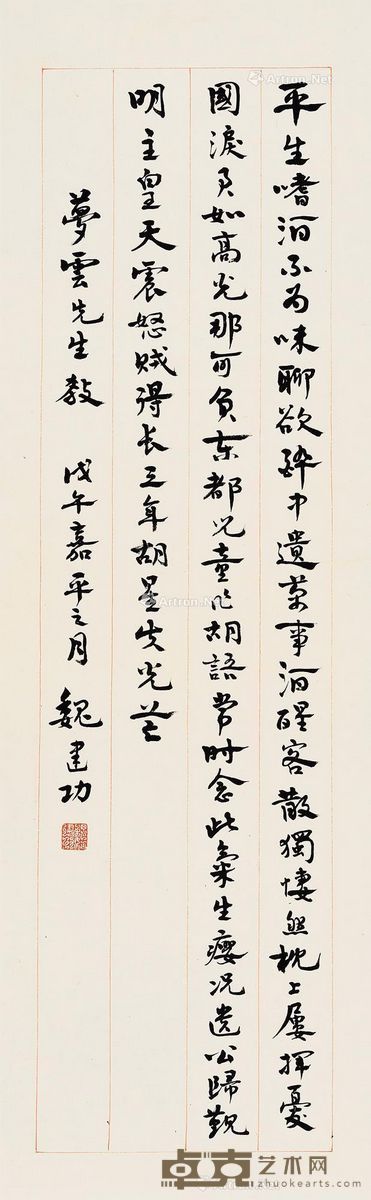 平生嗜酒不為味聊欲醉中遺萬事酒醒客散獨悽然枕上屢揮憂
國淚君如高光那可負東都兒童作胡語常時念此氣生癭况送公歸覲
明主皇天震怒賊得長三年胡星失光芒
夢雲先生教 戊午嘉平之月 魏建功
Artron.Net
卓克艺术网
www.zhuokearts.com